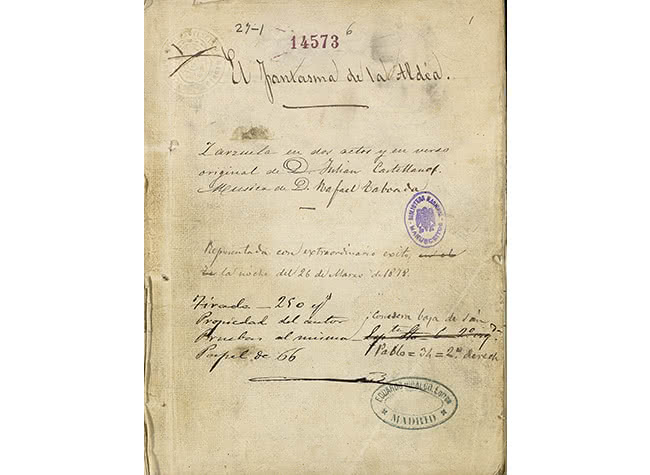 27-1
6
1
14573
El Fantasma de la Aldéa.
Zarzuela en dos actos y en verso
original de D. Julian Castellanos.
Musica de D. Rafael Taboada
BIBLIOTECA NACIONAL
MANUSCRITOS
Representada con extraordinario exito, en el
la noche del 26 de Marzo de 1878.
Tirada — 250 ejs
Propiedad del autor
Pruebas al mismo
Papel de 66
Corredera baja de San
Pablo = 34 = 2º derech
EDUARDO HIDALGO, Editor
MADRID